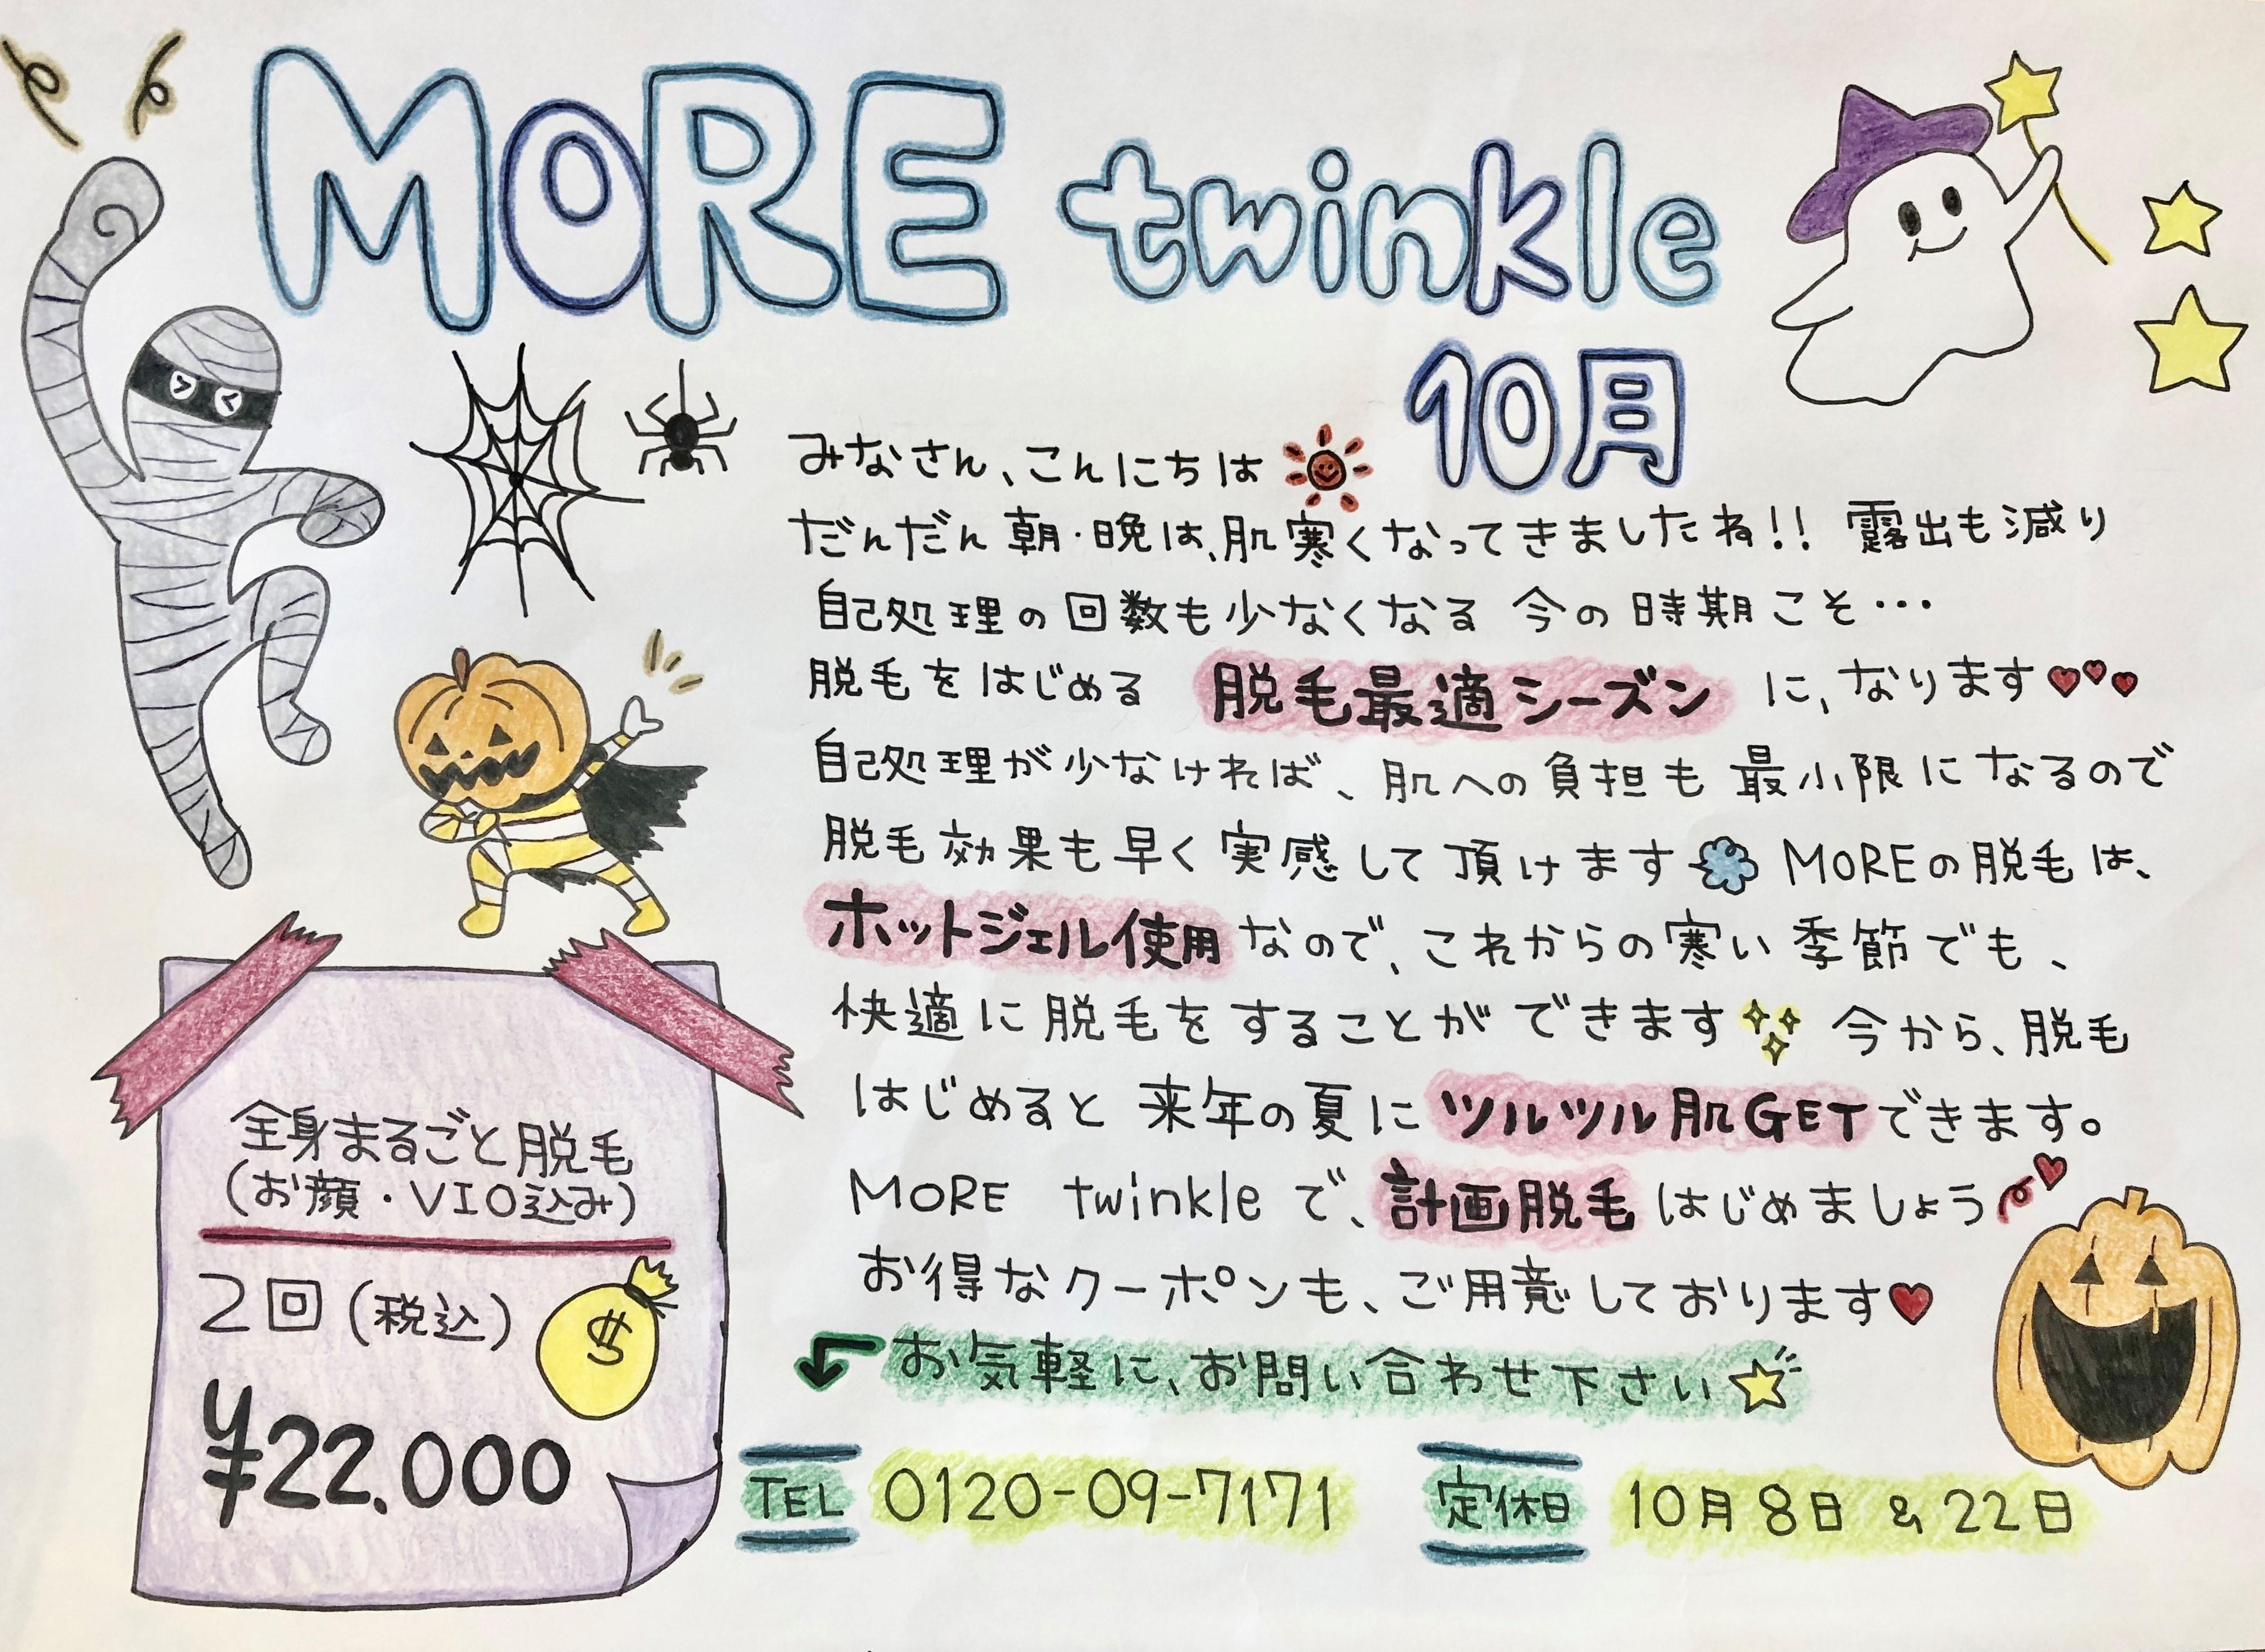 MORE twinkle
10月
みなさん、こんにちは
だんだん朝・晩は、肌寒くなってきましたね!! 露出も減り
自己処理の回数も少なくなる 今の時期こそ…
脱毛をはじめる 脱毛最適シーズン に、なります
自己処理が少なければ、肌への負担も最小限になるので
脱毛効果も早く実感して頂けます MOREの脱毛は、
ホットジェル使用なので、これからの寒い季節でも、
快適に脱毛をすることができます 今から、脱毛
はじめると来年の夏にツルツル肌GETできます。
MORE twinkleで、計画脱毛はじめましょう
お得なクーポンも、ご用意しております
お気軽に、お問い合わせ下さい
全身まるごと脱毛
(お顔・VIO込み)
2回(税込)
$
¥22.000
TEL 0120-09-7171 定休日 10月8日 & 22日